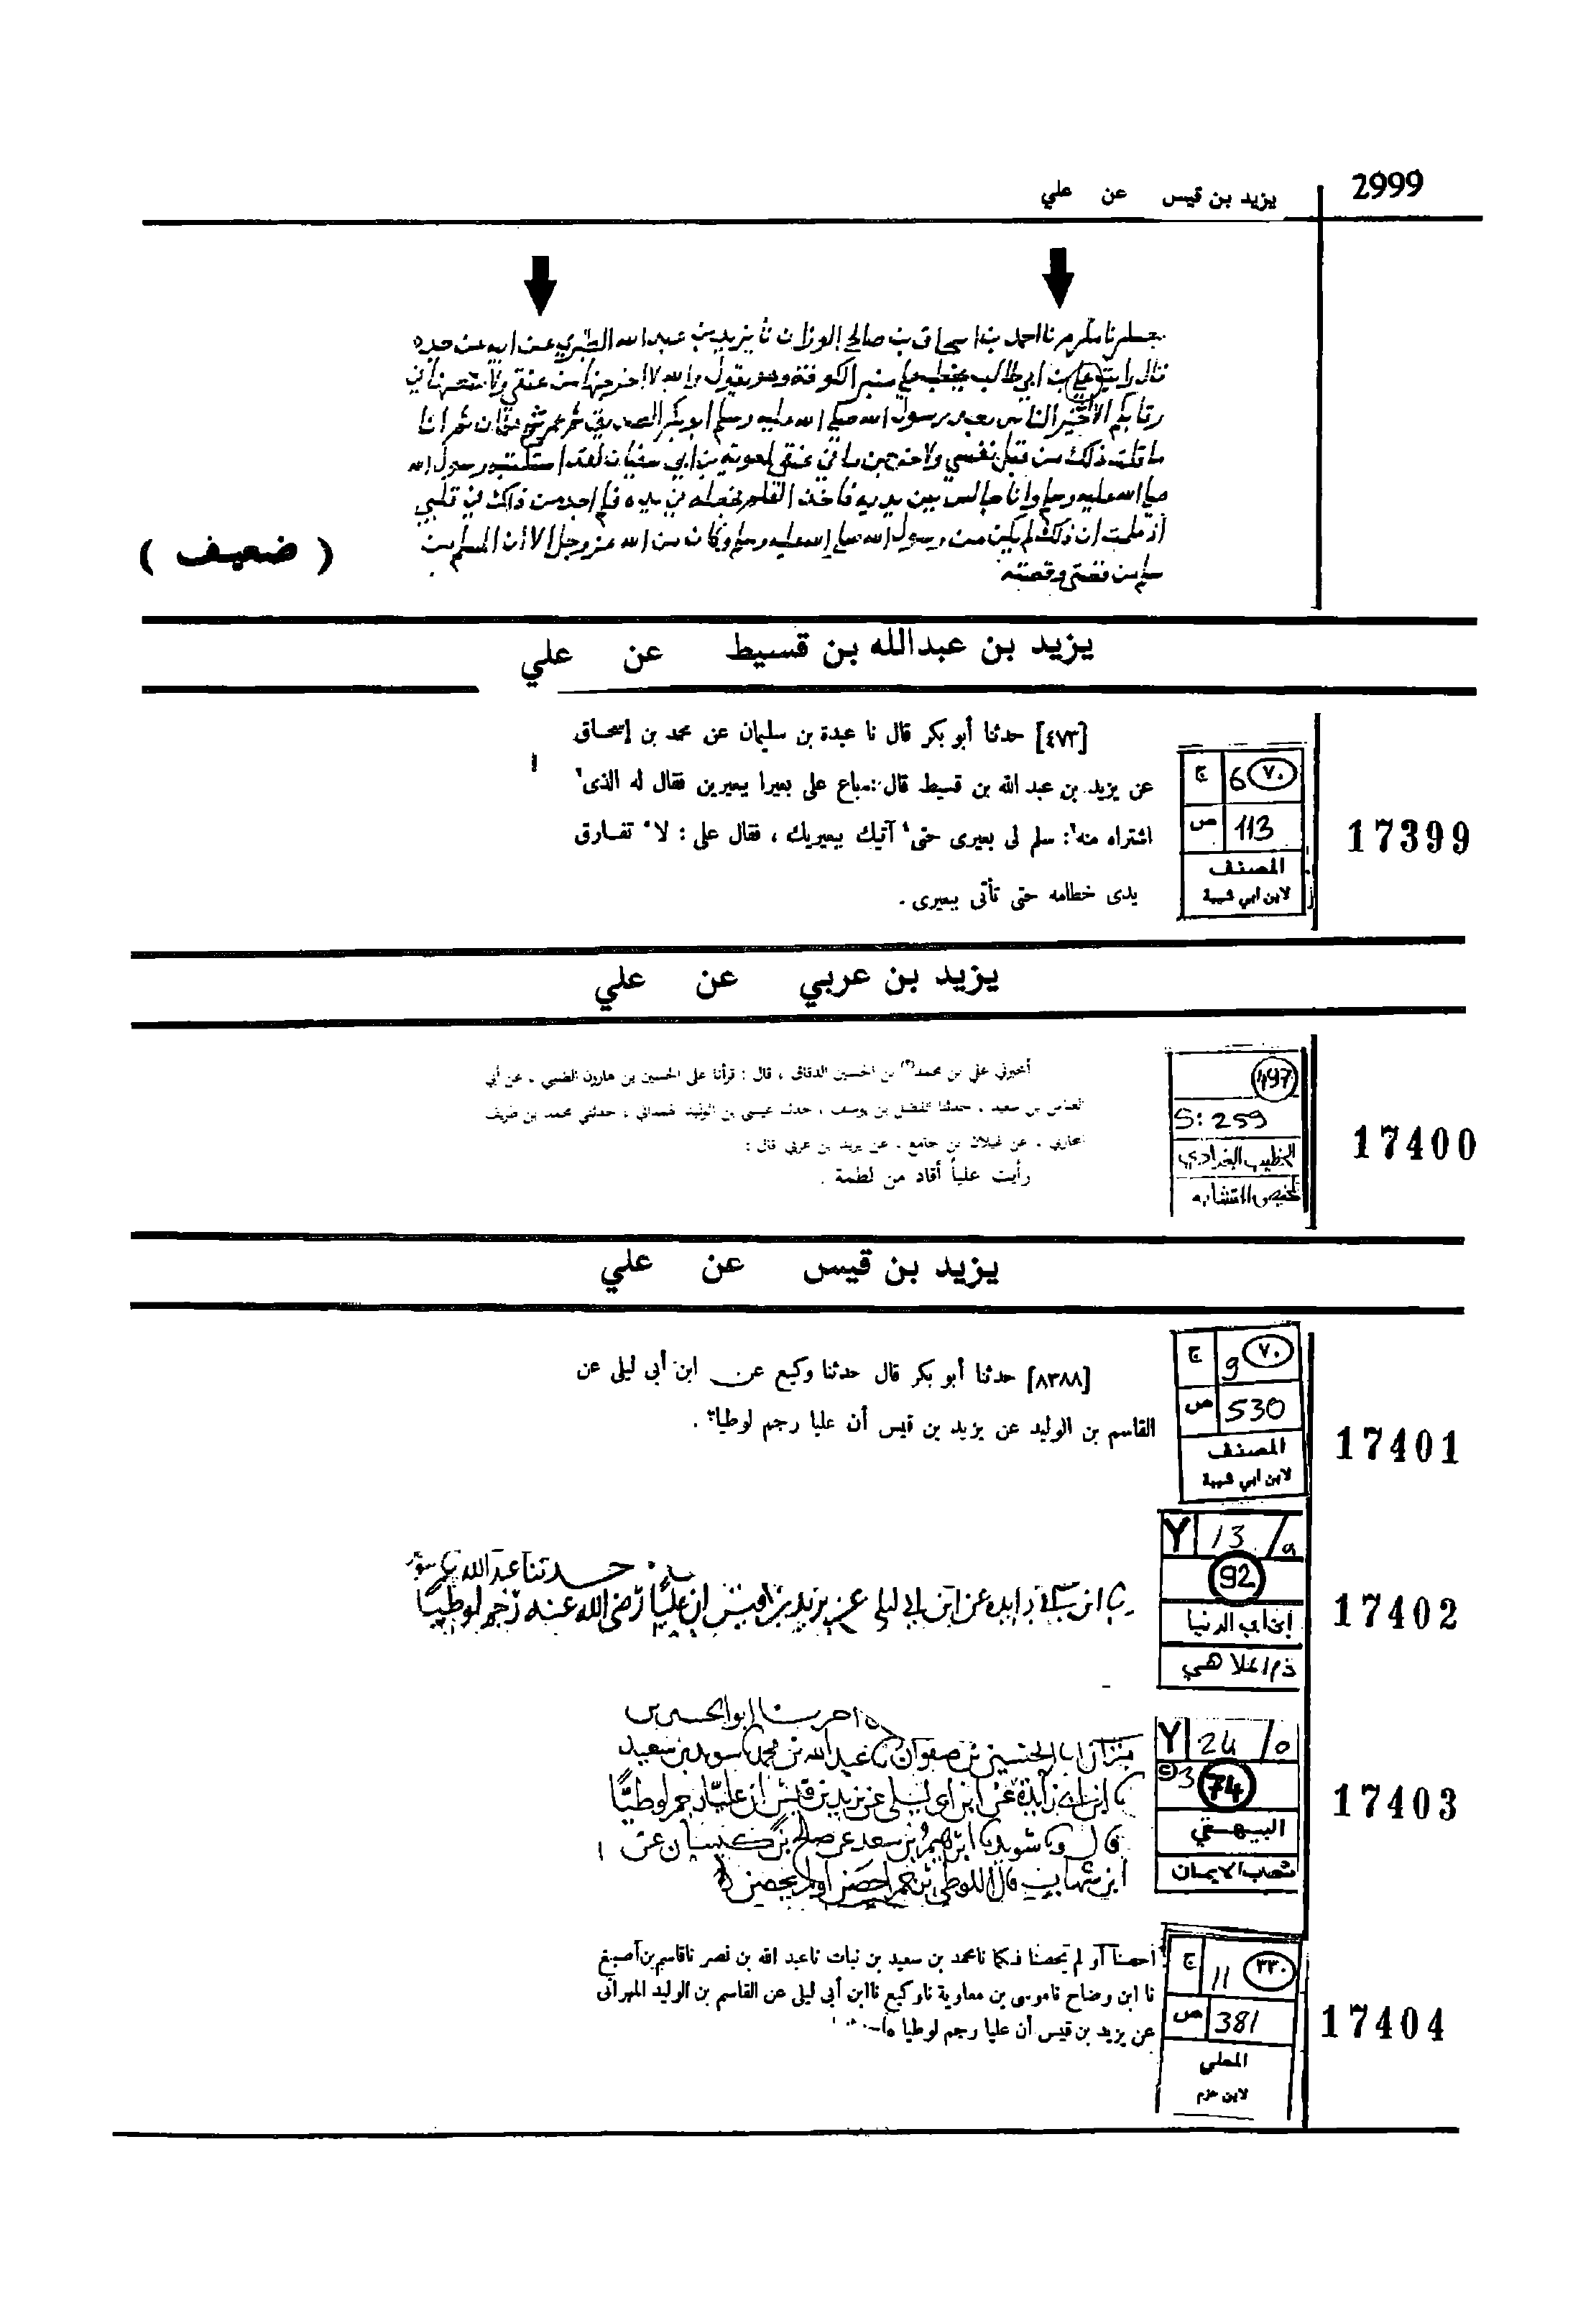 2999
يزيد بن قيس عن علي
نا احمد بن اسحاق بن صالح الوزان نا يزيد بن عبد الله الطبري عن ابيه عن جده
قال رايت علي بن ابي طالب يخطب على منبر الكوفة وهو يقول والله لاخرجنها من عنقي ولا
رقابكم الا خير الناس بعد رسول الله صلى الله عليه وسلم ابو بكر الصديق ثم عمر ثم عثمان ثم انا
ما قلت ذلك من قبل نفسي ولاخرجن ما في عنقي لمعوية بن ابي سفيان لقد استكتبه رسول الله
صلى الله عليه وسلم وانا جالس بين يديه فاخذ القلم فجعله في يده فلم اجد من ذاك في قلبي
اذ علمت ان ذلك لم يكن من رسول الله صلى الله عليه وسلم وكان من الله عز وجل الا ان المسلم من
سلم من قصتي وقصته
( ضعيف )
يزيد بن عبدالله بن قسيط عن علي
[٤٧٣] حدثنا أبو بكر قال نا عبدة بن سليمان عن محمد بن إسحاق
عن يزيد بن عبد الله بن قسيط قال: باع على بعيرا ببعيرين فقال له الذى
اشتراه منه: سلم لى بعيرى حتى آتيك ببعيريك ، فقال على : لا تفارق
يدى خطامه حتى تأتى ببعيرى .
ج 6 ٧٠
ص 113
المصنف
لابن ابي شيبة
17399
يزيد بن عربي عن علي
أخبرني علي بن محمد بن الحسين الدقاق ، قال : قرأنا على الحسين بن هارون الضبي ، عن أبي
العباس بن سعيد ، حدثنا الفضل بن يوسف ، حدثنا عيسى بن الوليد الهمداني ، حدثني محمد بن طريف
المحاربي ، عن غيلان بن جامع ، عن يزيد بن عربي قال :
رأيت علياً أقاد من لطمة .
497
S: 259
الخطيب البغدادي
تلخيص المتشابه
17400
يزيد بن قيس عن علي
[٨٣٨٨] حدثنا أبو بكر قال حدثنا وكيع عن ابن أبي ليلى عن
القاسم بن الوليد عن يزيد بن قيس أن عليا رجم لوطيا .
ج 9 ٧٠
ص 530
المصنف
لابن ابي شيبة
17401
حدثنا عبد الله
زايده عن ابن ابي ليلى عن يزيد بن قيس ان عليا رضي الله عنه رجم لوطيا
Y 13 /a
92
ابن ابي الدنيا
ذم الملاهي
17402
اخبرنا ابو الحسين بن
بشران انا الحسين بن صفوان نا عبد الله بن محمد نا سويد بن سعيد
نا ابن ابي زايدة عن ابن ابي ليلى عن يزيد بن قيس ان عليا رجم لوطيا
قال ونا سويد نا ابرهيم بن سعد عن صالح بن كيسان عن
ابن شهاب قال اللوطي يرجم احصن او لم يحصن
Y 24 /o
3 74
البيهقي
شعب الايمان
17403
أحصنا أو لم يحصنا فكما نا محمد بن سعيد بن نبات نا عبد الله بن نصر نا قاسم بن أصبغ
نا ابن وضاح نا موسى بن معاوية نا وكيع نا ابن أبي ليلى عن القاسم بن الوليد المهرانى
عن يزيد بن قيس أن عليا رجم لوطيا
ج 11 ٣٣٠
ص 381
المحلى
لابن حزم
17404